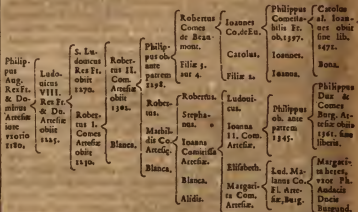 Philip-
pus
Aug.
Rex Fr.
& Do-
minus
Artesiæ
iure
1180.
Ludo-
uicus
VIII.
Rex Fr.
& Do.
Artesiæ
obiit
1225.
S. Lu-
douicus
Rex Fr.
obiit
1270.
Rober-
tus I.
Comes
Artesiæ
obiit
1250.
Rober-
tus II.
Com.
Artesiæ
obiit
1302.
Blanca.
Philip-
pus ob.
ante
patrem
1298.
Rober-
tus.
Mathil-
dis Co.
Artesiæ.
Blanca.
Robertus
Comes
de Beau-
mont.
Filiæ 3.
aut 4.
Robertus.
Stepha-
nus.
Ioanna
Comitissa
Artesiæ.
Blanca.
Alidis.
Ioannes
Co. de Eu.
Carolus.
Filiæ 2.
Ludoui-
cus.
Ioanna
II. Com.
Artesiæ.
Elisabeth.
Margari-
ta Com.
Artesiæ.
Philippus
Comesta-
bilis Fr.
ob. 1397.
Ioannes.
Ioanna.
Philippus
ob. ante
patrem
1345.
Lud. Ma-
lanus Co.
Fl. Arte-
siæ, Burg.
Carolus
al. Ioan-
nes obiit
sine lib.
1472.
Bona.
Philippus
Dux &
Comes
Burg. Ar-
tesiæ obiit
1361. sine
liberis.
Margari-
ta heres,
vxor Ph.
Audacis
Ducis
Burgund.